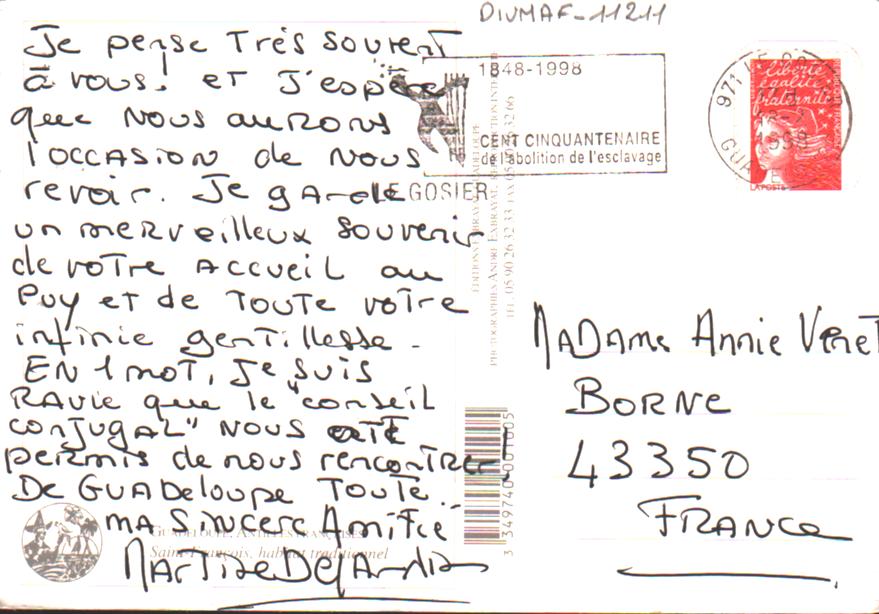 DIVMAF-11211
Je pense très souvent
à vous! et J'espère
que nous aurons
l'occasion de nous
revoir. Je garde
un merveilleux souvenir
de votre accueil au
Puy et de toute votre
infinie gentillesse -
En 1 mot, je suis
ravie que le "conseil
conjugal" nous ait
permis de nous rencontrer
De Guadeloupe toute
ma sincère Amitié
Martine
1848-1998
CENT CINQUANTENAIRE
de l'abolition de l'esclavage
LE GOSIER
971
liberté
égalité
fraternité
RÉPUBLIQUE FRANÇAISE
LA POSTE
Madame Annie Veret
BORNE
43350
FRANCE
TEL. 05 90 26 32 33
3 349740 001605
GUADELOUPE, ANTILLES FRANÇAISES
Saint-François, habitat traditionnel